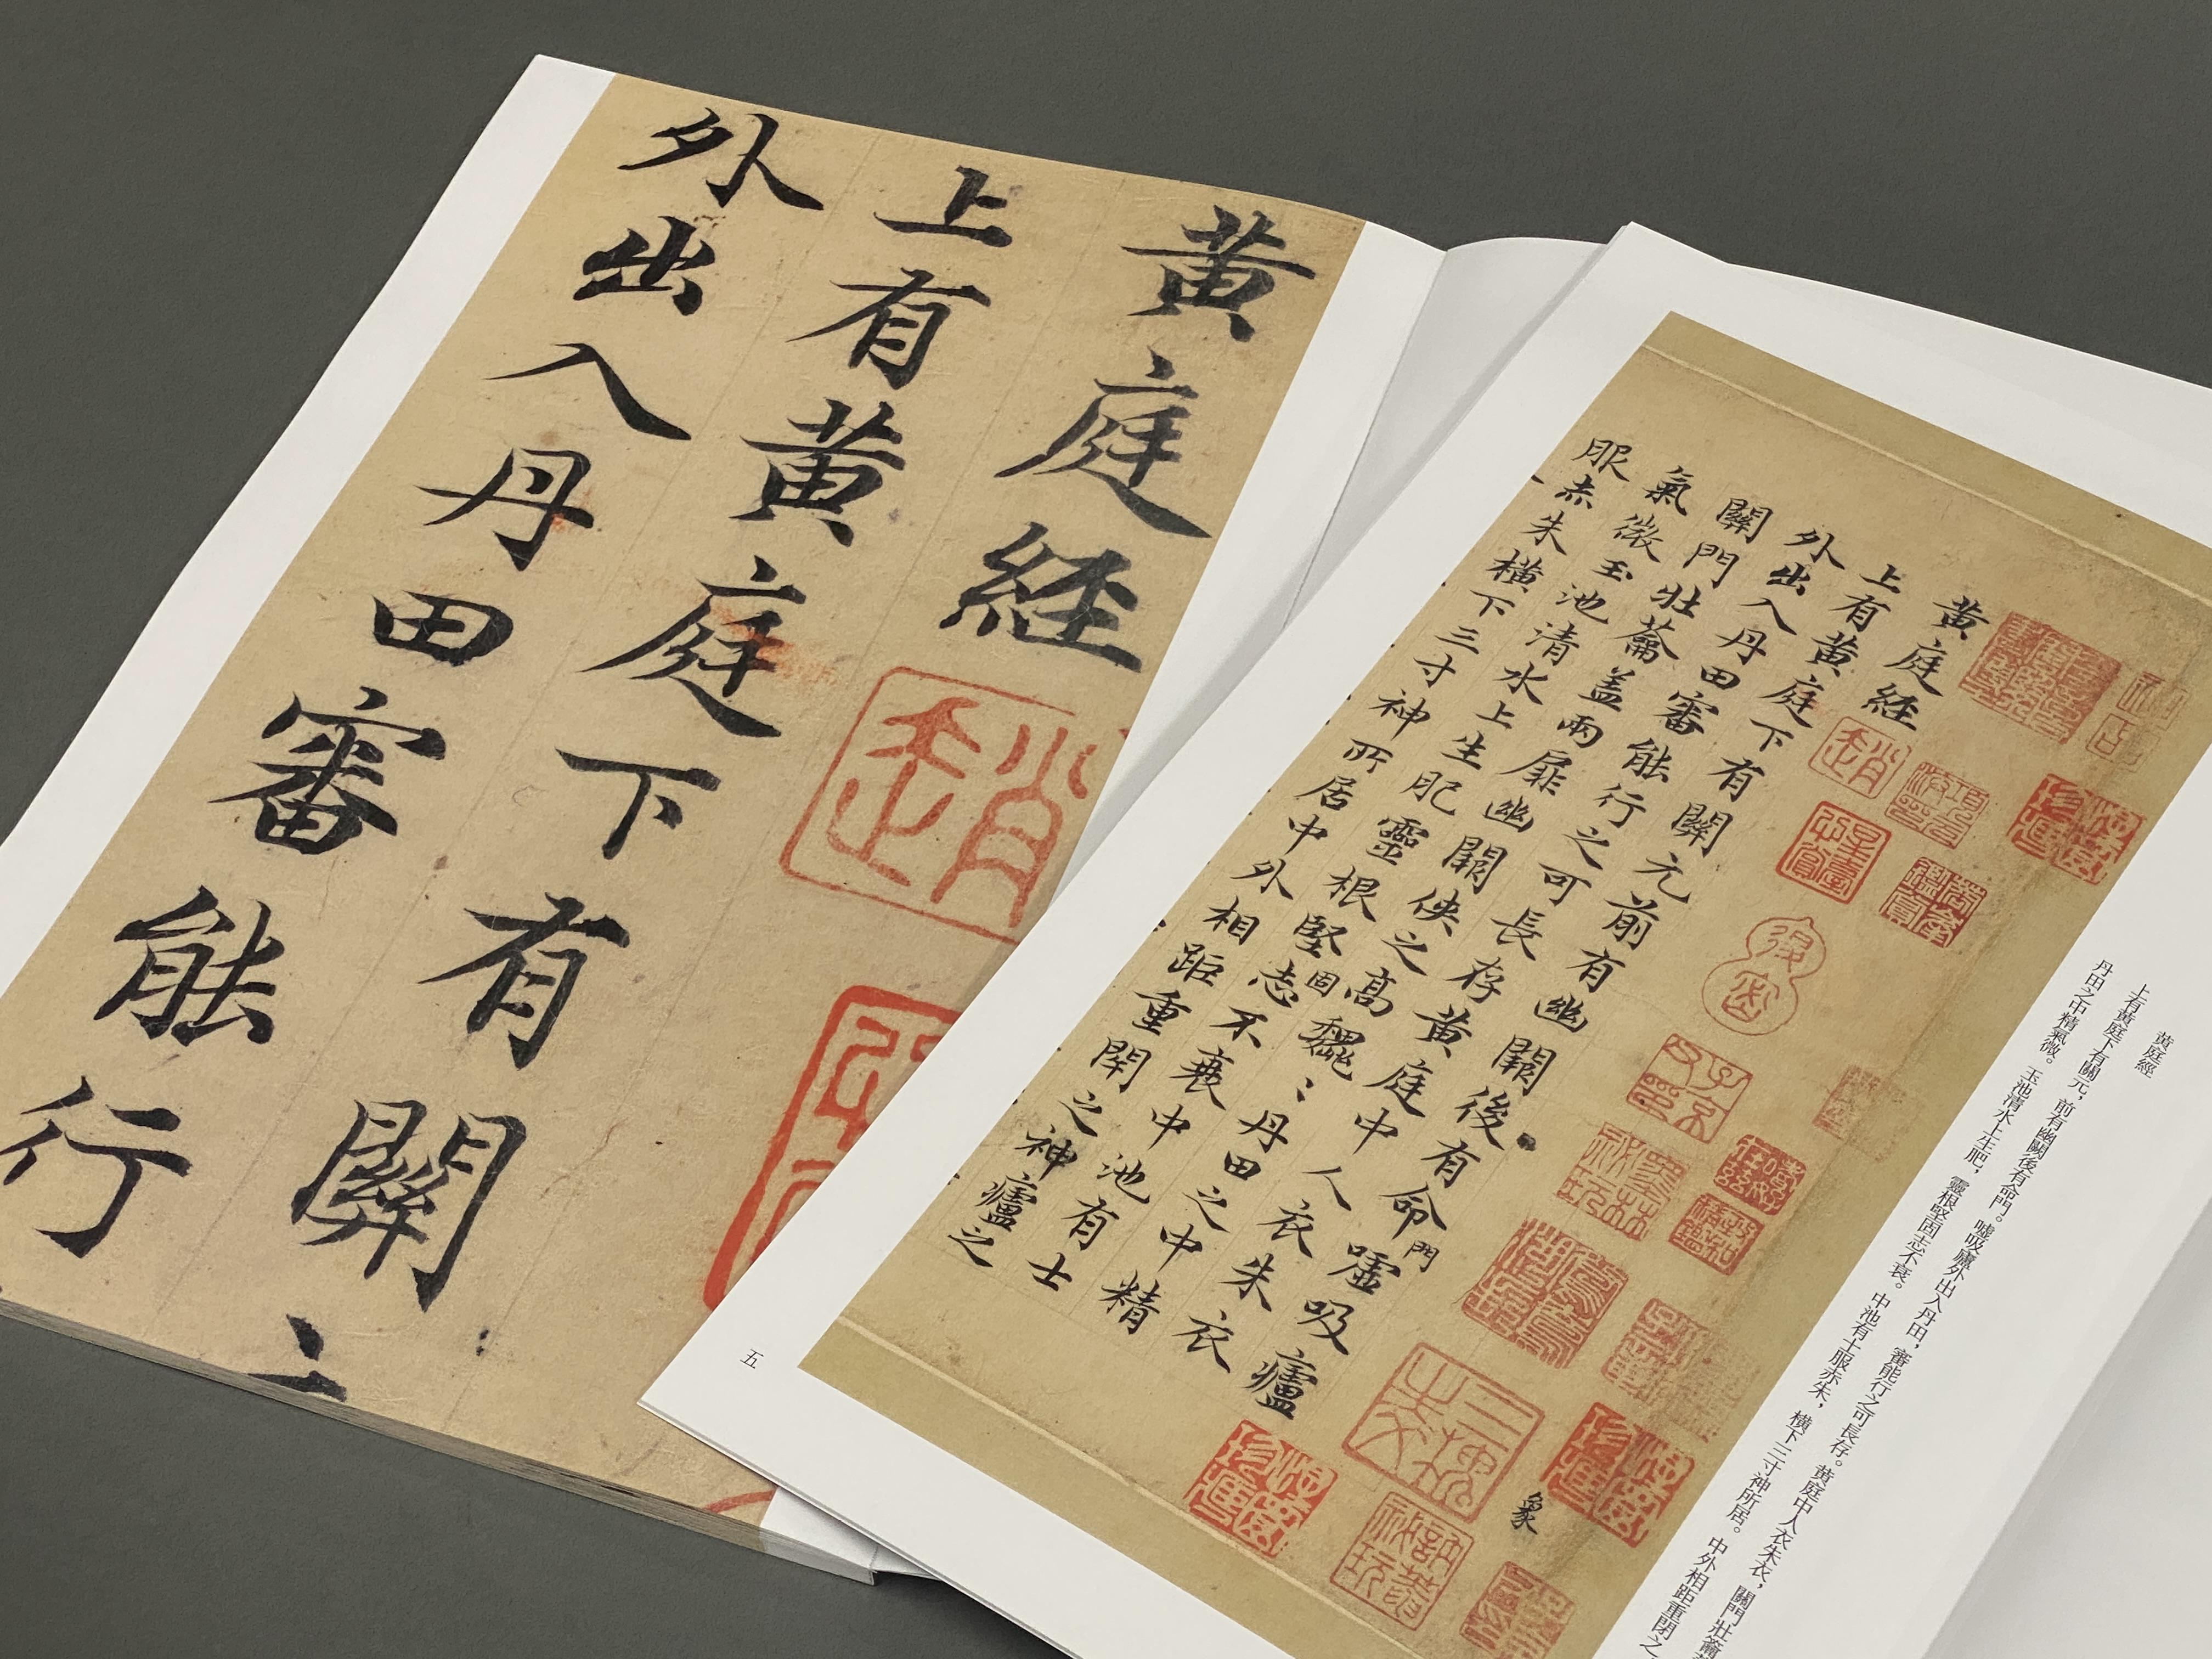 黄庭経
上有黄庭下有關
外出入丹田審能行
趙
黄庭経
上有黄庭下有關元前有幽闕後有命門嘘吸廬
外出入丹田審能行之可長存黄庭中人衣朱衣
關門壯蘥盖兩扉幽闕侠之高魏〻丹田之中精
氣微玉池清水上生肥靈根堅固志不衰中池有士
服赤朱横下三寸神所居中外相距重閇之神廬之
趙
墨林秘玩
象
黄庭經
上有黄庭下有關元，前有幽闕後有命門。嘘吸廬外出入丹田，審能行之可長存。黄庭中人衣朱衣，關門壯籥
丹田之中精氣微。玉池清水上生肥，靈根堅固志不衰。中池有士服赤朱，横下三寸神所居。中外相距重閉之
五